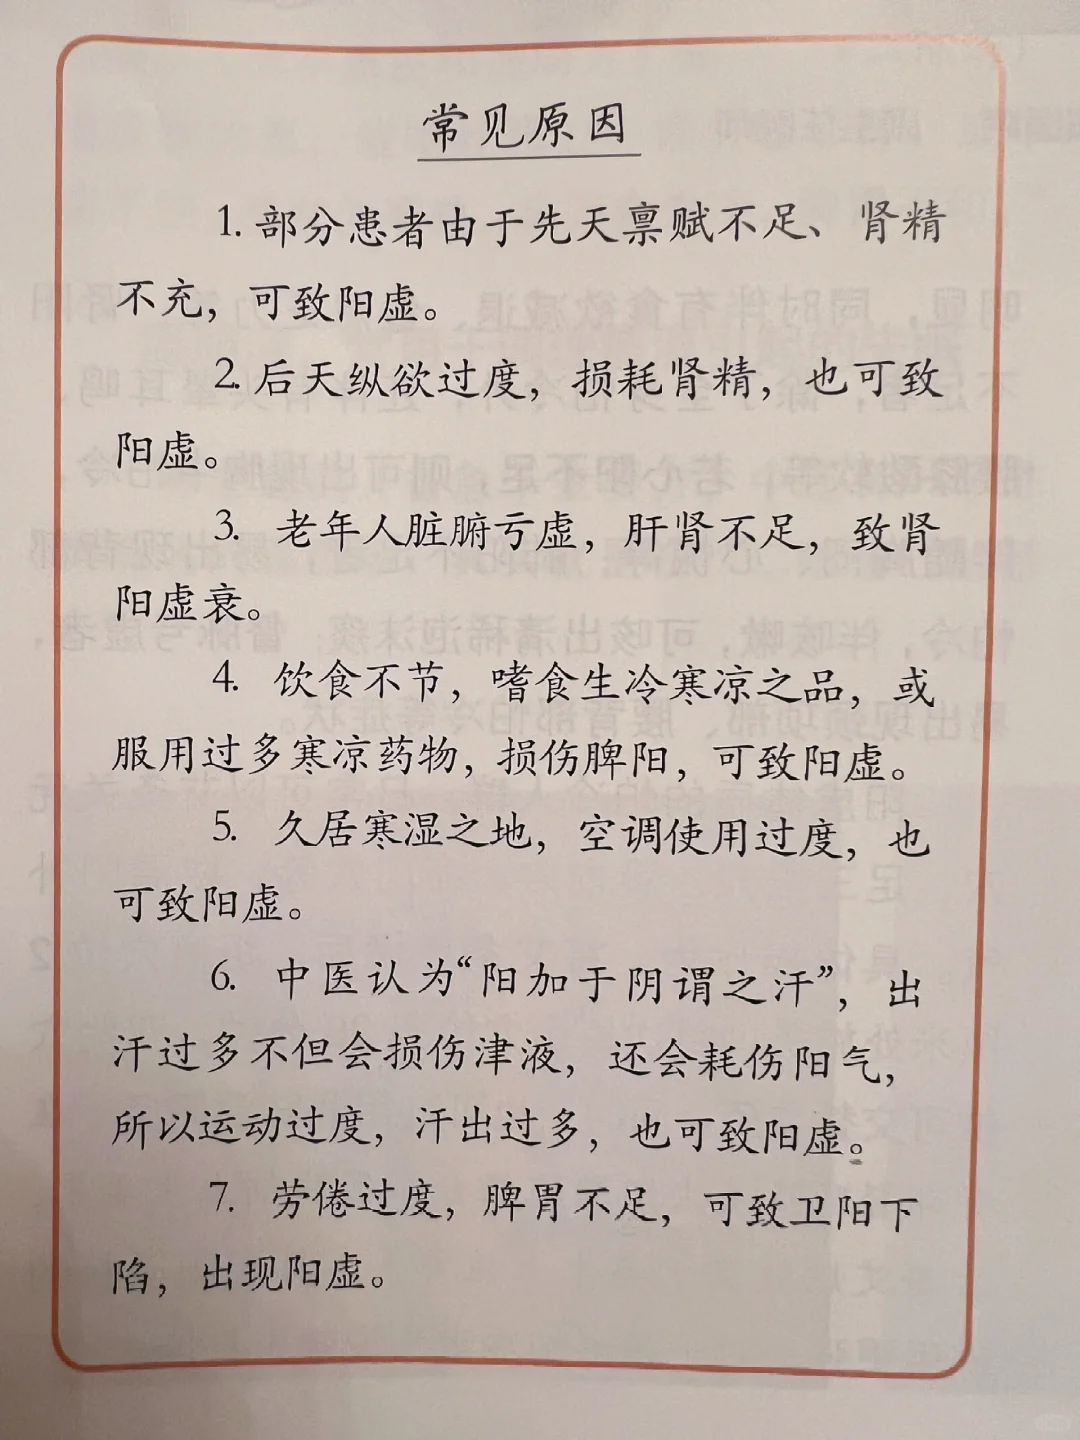 常见原因
1. 部分患者由于先天禀赋不足、肾精
不充，可致阳虚。
2. 后天纵欲过度，损耗肾精，也可致
阳虚。
3. 老年人脏腑亏虚，肝肾不足，致肾
阳虚衰。
4. 饮食不节，嗜食生冷寒凉之品，或
服用过多寒凉药物，损伤脾阳，可致阳虚。
5. 久居寒湿之地，空调使用过度，也
可致阳虚。
6. 中医认为“阳加于阴谓之汗”，出
汗过多不但会损伤津液，还会耗伤阳气，
所以运动过度，汗出过多，也可致阳虚。
7. 劳倦过度，脾胃不足，可致卫阳下
陷，出现阳虚。